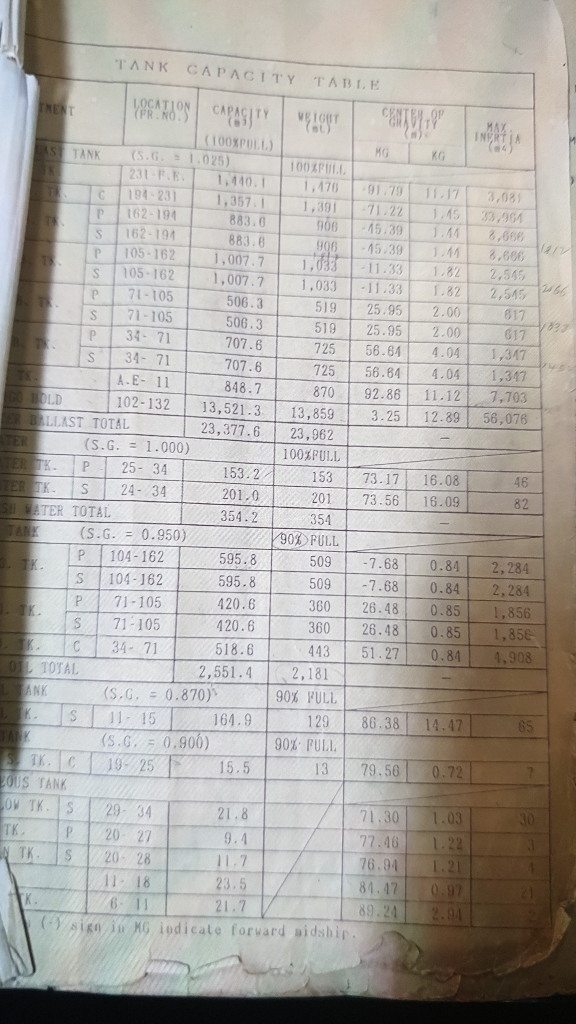 TANK CAPACITY TABLE
MENT LOCATION (FR.NO.) CAPACITY (m3) (100%FULL) WEIGHT (mt) CENTER OF GRAVITY (m) MG KG MAX. INERTIA (m4)
AST TANK (S.G. = 1.025) 100%FULL
TK. 231-F.E. 1,440.1 1,476 -91.79 11.17 3,081
TK. C 194-231 1,357.1 1,391 -71.22 1.45 33,964
TK. P 162-194 883.6 906 -45.39 1.44 8,666
S 162-194 883.6 906 -45.39 1.44 8,666
TK. P 105-162 1,007.7 1,033 -11.33 1.82 2,545
S 105-162 1,007.7 1,033 -11.33 1.82 2,545
TK. P 71-105 506.3 519 25.95 2.00 617
S 71-105 506.3 519 25.95 2.00 617
TK. P 34- 71 707.6 725 56.64 4.04 1,347
S 34- 71 707.6 725 56.64 4.04 1,347
TK. A.E- 11 848.7 870 92.86 11.12 7,703
GO HOLD 102-132 13,521.3 13,859 3.25 12.89 56,076
ER BALLAST TOTAL 23,377.6 23,962 —
TER (S.G. = 1.000) 100%FULL
TER TK. P 25- 34 153.2 153 73.17 16.08 46
TER TK. S 24- 34 201.0 201 73.56 16.09 82
SH WATER TOTAL 354.2 354 —
TANK (S.G. = 0.950) 90% FULL
O. TK. P 104-162 595.8 509 -7.68 0.84 2,284
S 104-162 595.8 509 -7.68 0.84 2,284
O. TK. P 71-105 420.6 360 26.48 0.85 1,856
S 71-105 420.6 360 26.48 0.85 1,856
O. TK. C 34- 71 518.6 443 51.27 0.84 4,908
OIL TOTAL 2,551.4 2,181 —
L TANK (S.G. = 0.870) 90% FULL
TK. S 11- 15 164.9 129 86.38 14.47 65
TANK (S.G. = 0.900) 90% FULL
TK. C 19- 25 15.5 13 79.56 0.72 7
EOUS TANK
LOW TK. S 29- 34 21.8 71.30 1.03 30
TK. P 20- 27 9.4 77.46 1.22 3
N TK. S 20- 28 11.7 76.94 1.21 4
11- 18 23.5 84.47 0.97 21
TK. 6- 11 21.7 89.24 2.94 2
(-) sign in MG indicate forward midship.